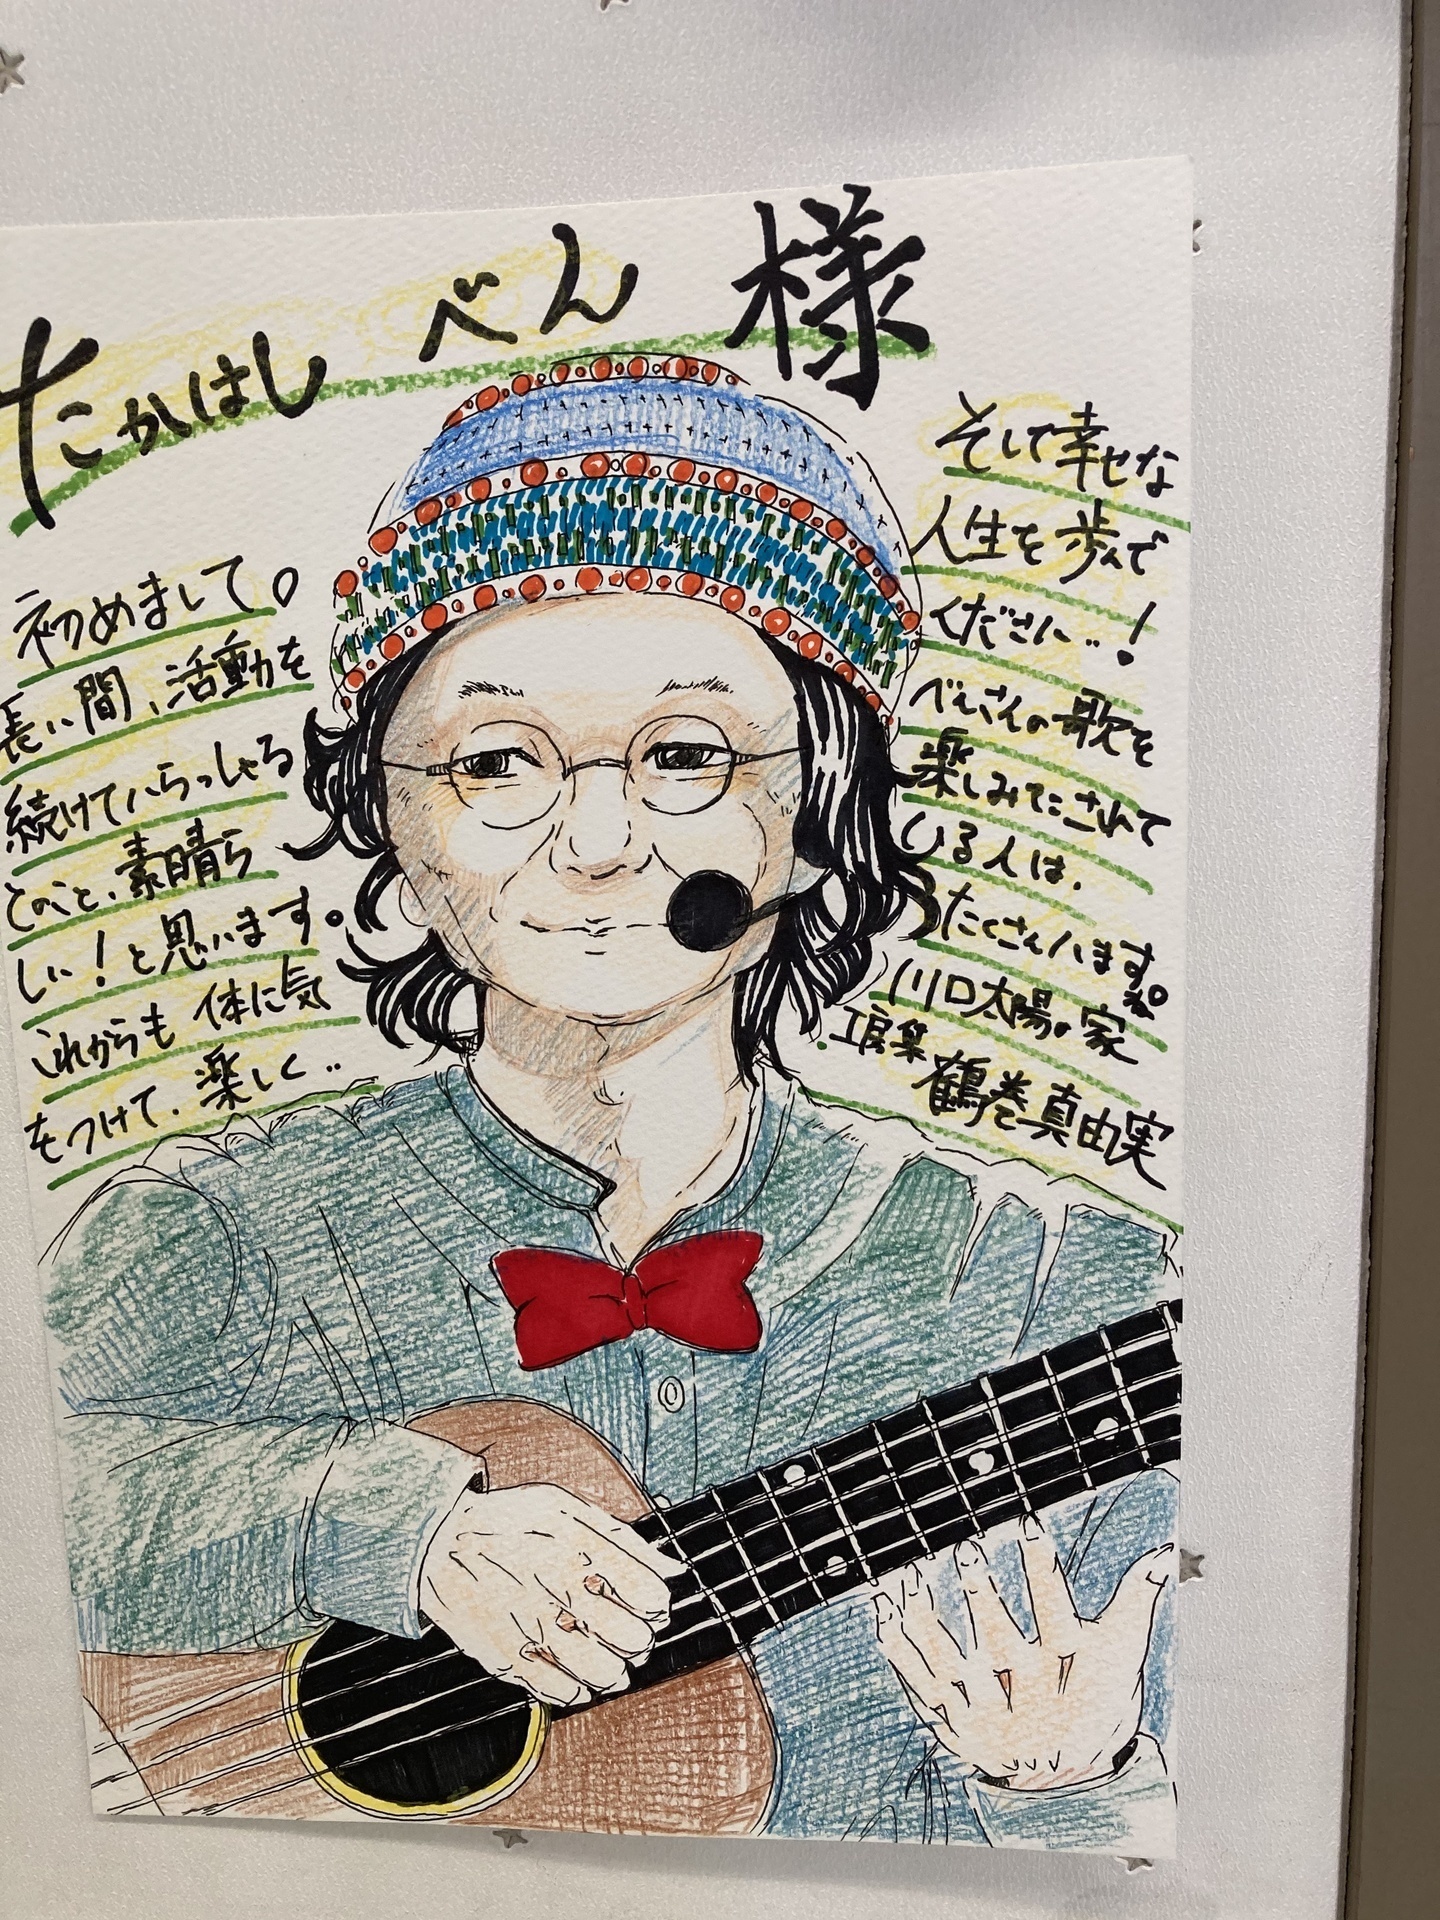 たかはし べん 様
初めまして。
長い間、活動を
続けていらっしゃる
とのこと、素晴ら
しい！と思います。
これからも 体に気
をつけて、楽しく‥
そして幸せな
人生を歩んで
ください‥！
べんさんの歌を
楽しみにされて
いる人は、
たくさんいますね。
川口太陽の家
工房集 鶴巻真由実